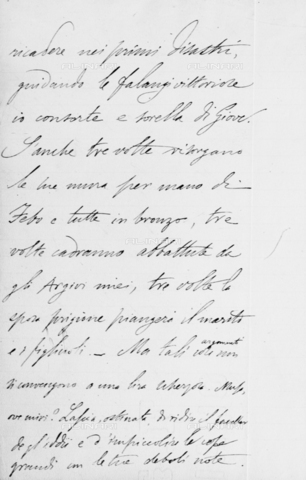 ricadere nei primi disastri,
guidando le falangi vittoriose
io consorte e sorella di Giove.
S'anche tre volte risorgano
le sue mura per mano di
Febo e tutte in bronzo, tre
volte cadranno abbattute da
gli Argivi miei, tre volte la
sposa prigione piangerà il marito
e i figliuoli — Ma tali argomenti non
si convengono a una lira scherzosa. Musa,
ove miri? Lascia, ostinata, di ridir i
degl'iddii e d'impicciolire le cose
grandi con le tue deboli note.